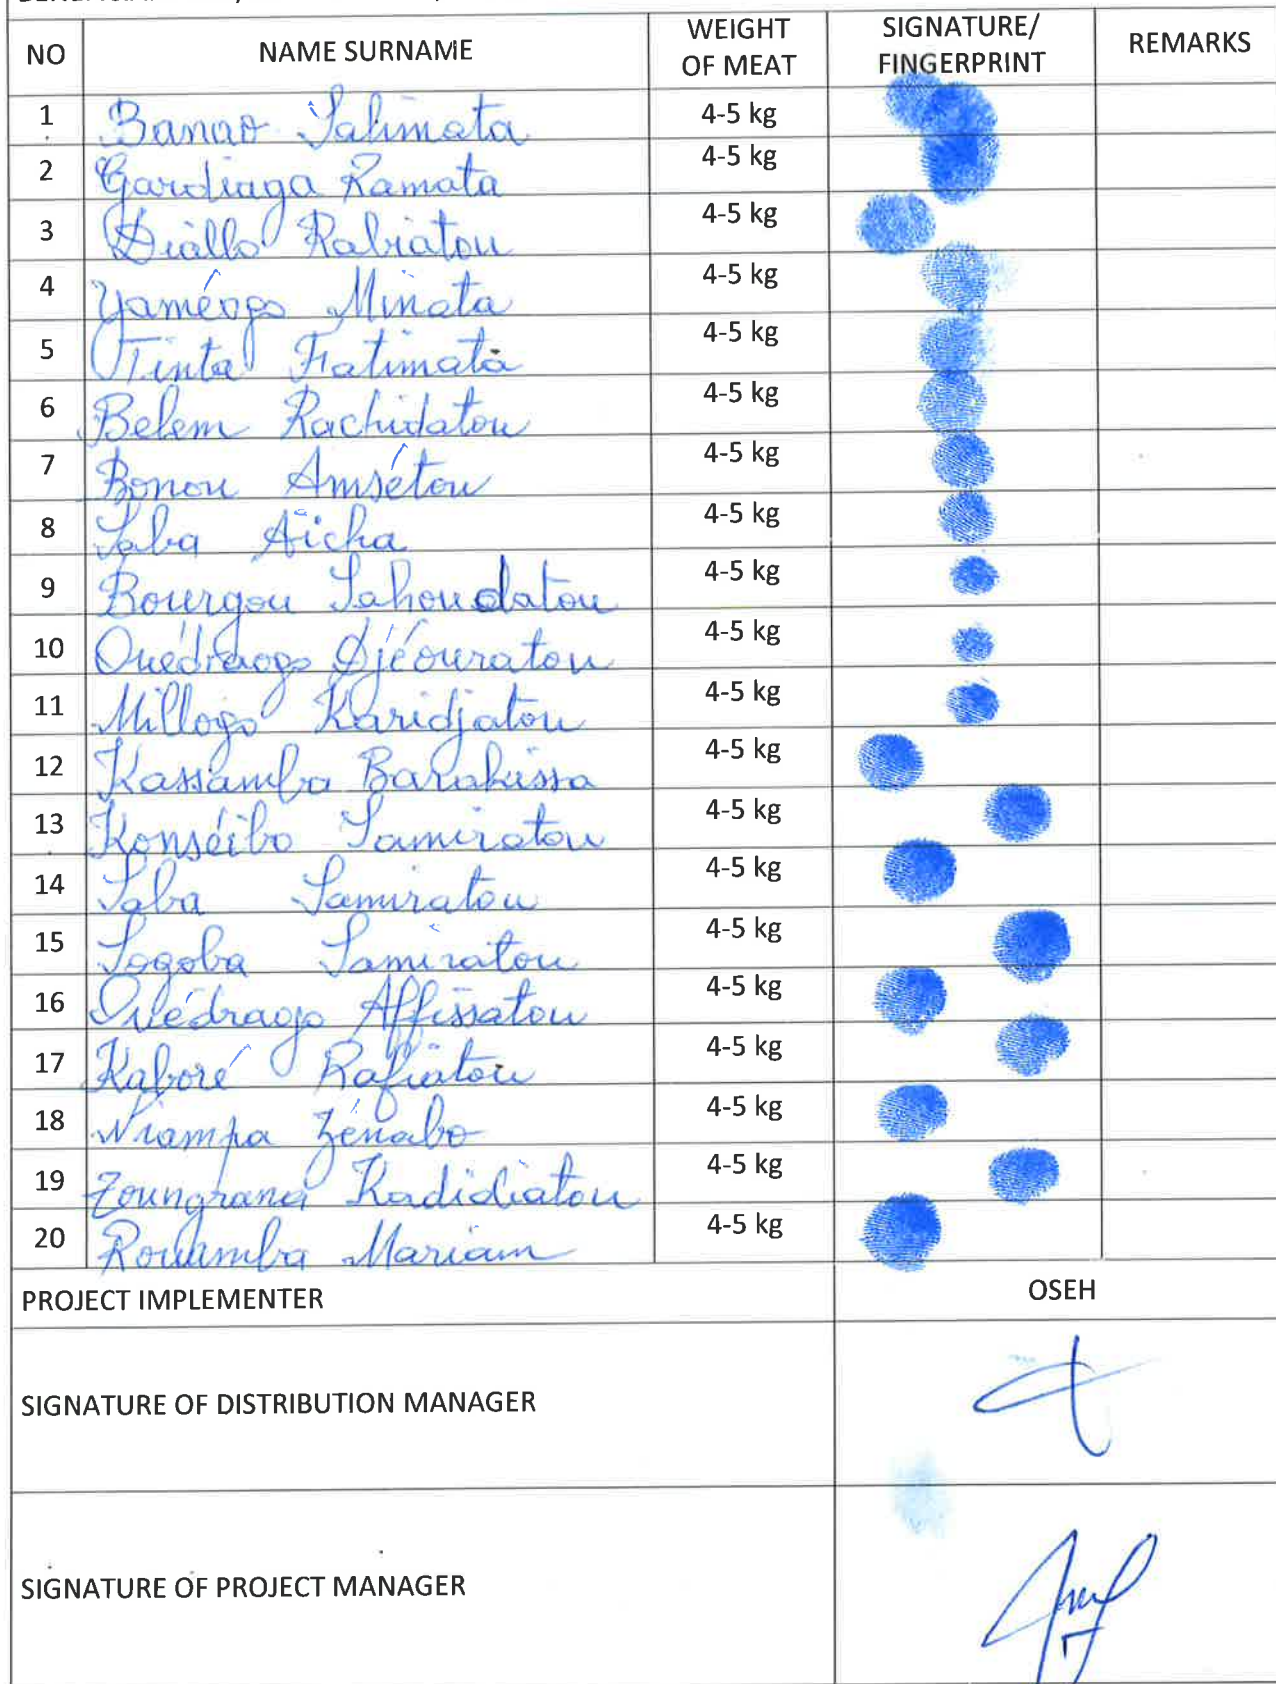 NO NAME SURNAME WEIGHT OF MEAT SIGNATURE/ FINGERPRINT REMARKS
1 Banao Salimata 4-5 kg
2 Gardiaga Ramata 4-5 kg
3 Diallo Rabiatou 4-5 kg
4 Yaméogo Minata 4-5 kg
5 Tinta Fatimata 4-5 kg
6 Belem Rachidatou 4-5 kg
7 Bonou Amsétou 4-5 kg
8 Saba Aïcha 4-5 kg
9 Bourgou Sahoudatou 4-5 kg
10 Ouédraogo Djéouratou 4-5 kg
11 Millogo Karidjatou 4-5 kg
12 Kassamba Barakissa 4-5 kg
13 Konséibo Samiratou 4-5 kg
14 Saba Samiratou 4-5 kg
15 Sogoba Samiratou 4-5 kg
16 Ouédraogo Affissatou 4-5 kg
17 Kaboré Rafiatou 4-5 kg
18 Niampa Zénabo 4-5 kg
19 Zoungrana Kadidiatou 4-5 kg
20 Rouamba Mariam 4-5 kg
PROJECT IMPLEMENTER OSEH
SIGNATURE OF DISTRIBUTION MANAGER
SIGNATURE OF PROJECT MANAGER